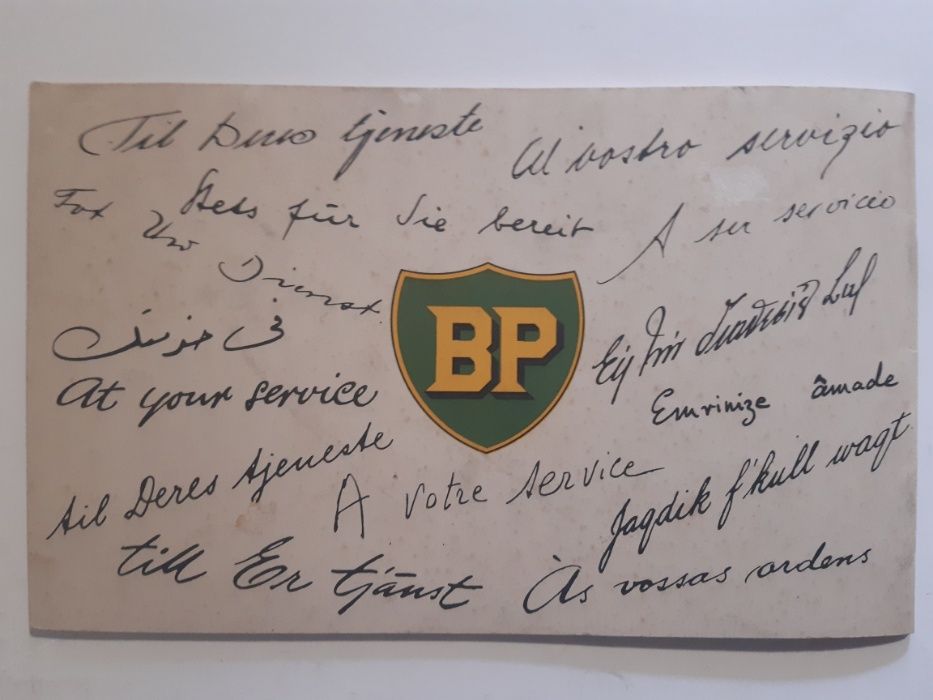 Til Deres tjeneste
Al vostro servizio
Stets für Sie bereit
A su servicio
Tot Uw Dienst
في خدمتك
BP
Εἰς τὴν διάθεσίν Σας
At your service
Emrinize âmade
til Deres tjeneste
A votre service
Jaqdik f'kull waqt
till Er tjänst
Às vossas ordens